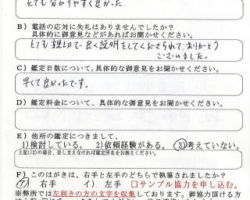 とても分かりやすく良かった
B）電話の応対に失礼はありませんでしたか？
具体的な御意見などがあればお聞かせください。
とても親切で良く説明をしてくださるので、ありがとう
ございました。
C）鑑定日数について、具体的な御意見をお聞かせください。
早くて良かったです。
D）鑑定料金について、具体的な御意見をお聞かせください。
E）他所の鑑定につきまして、
1)検討している。 2)依頼経験がある。 3)考えていない。
F）このはがきは、右手と左手のどちらで執筆されましたか？
ア）右手 イ）左手 □サンプル協力を申し込む。
※弊所では左利きの方の文字を収集しております。御協力頂ける方